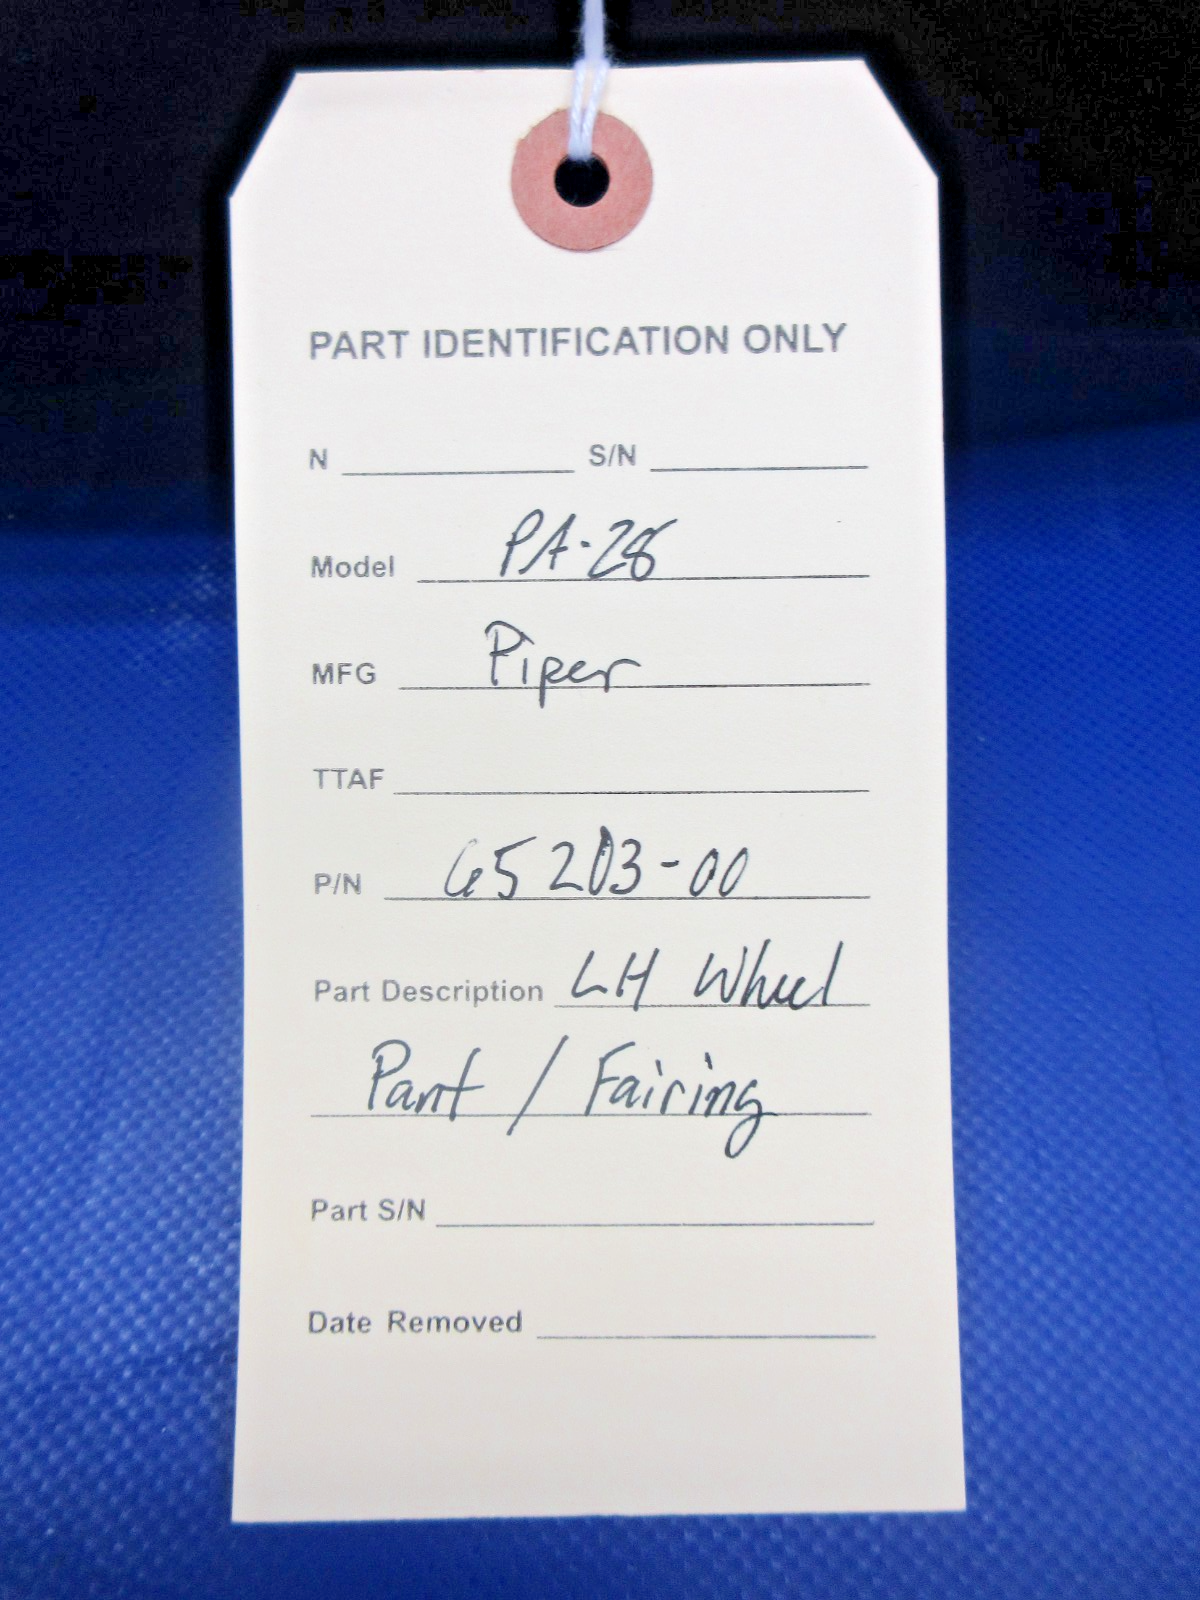 PART IDENTIFICATION ONLY
N S/N
Model PA-28
MFG Piper
TTAF
P/N 65203-00
Part Description LH Wheel
Pant / Fairing
Part S/N
Date Removed